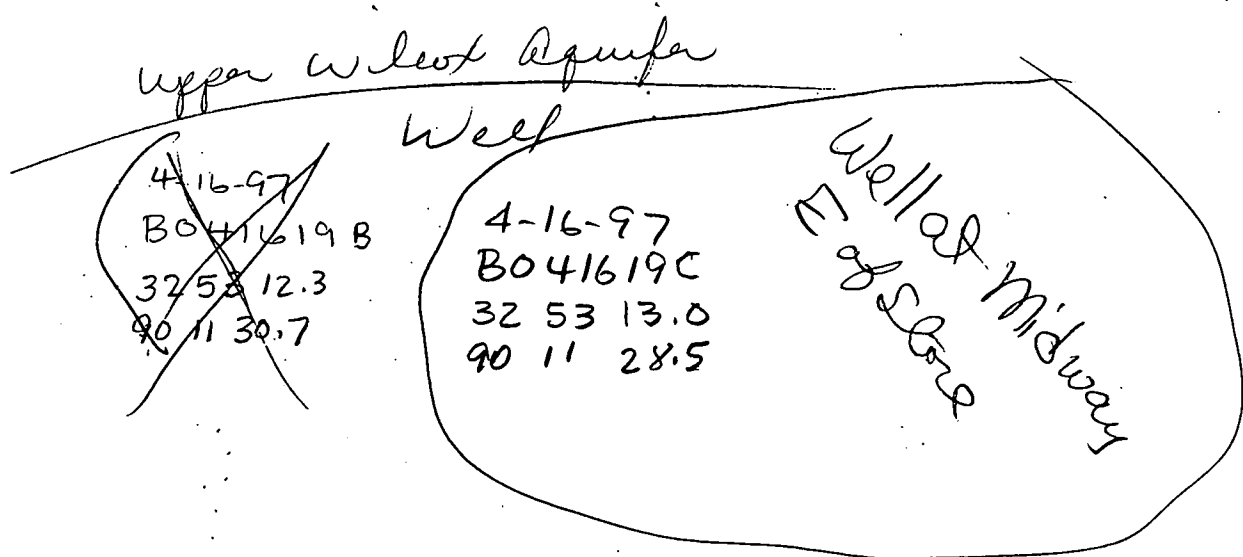 Upper Wilcox Aquifer
Well
4-16-97
B041619B
32 53 12.3
90 11 30.7
4-16-97
B041619C
32 53 13.0
90 11 28.5
Well at Midway
E of Store